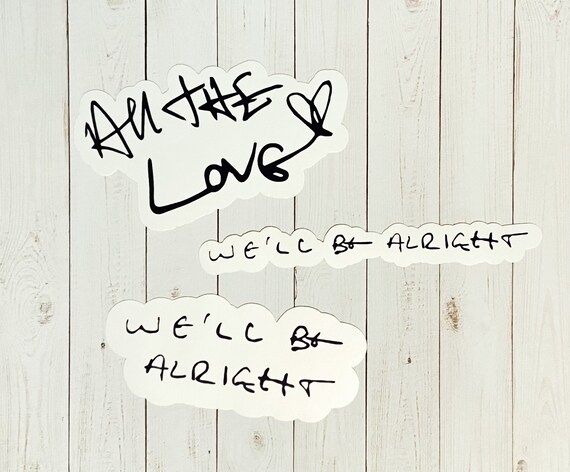 All THE
LOVE
WE'LL BE ALRIGHT
WE'LL BE
ALRIGHT